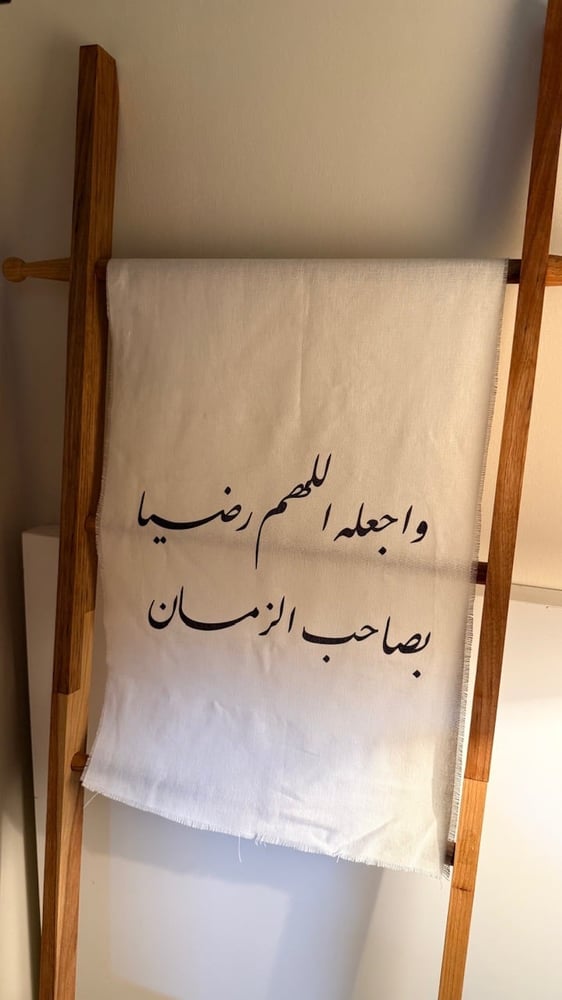 واجعله اللهم رضیا
بصاحب الزمان